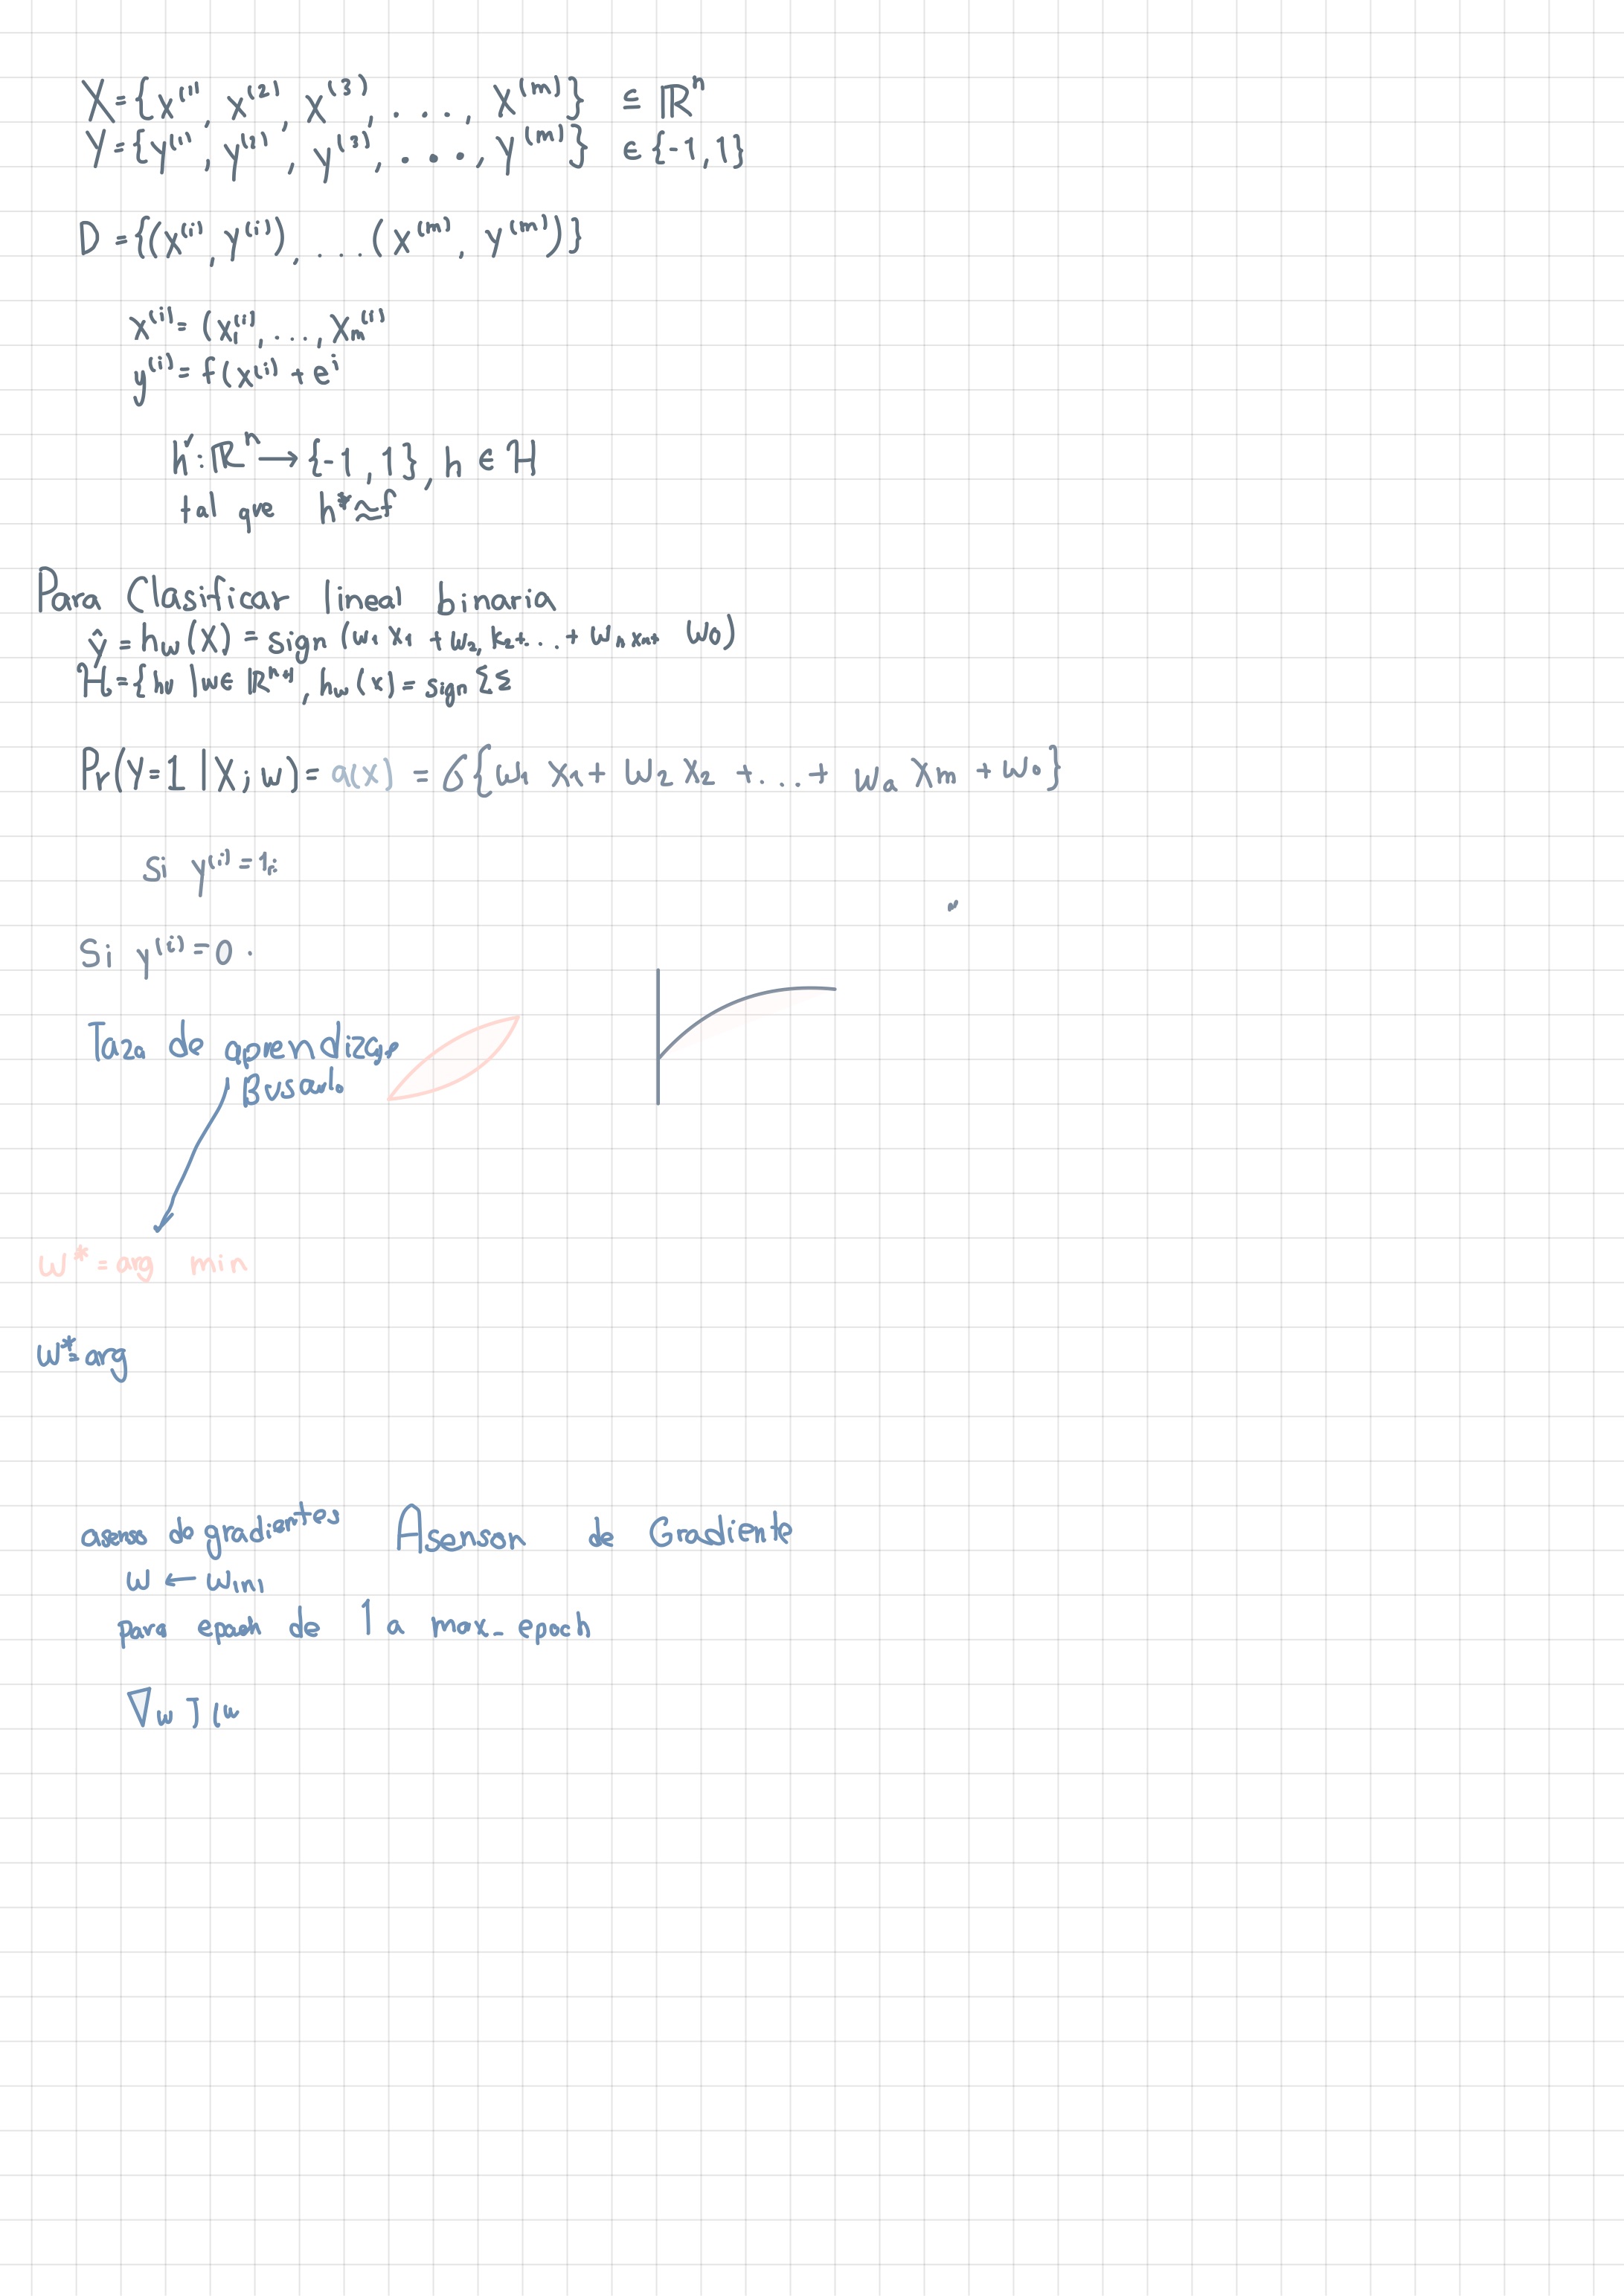 X={x⁽¹⁾, x⁽²⁾, x⁽³⁾, ..., x⁽ᵐ⁾} ⊆ ℝⁿ
Y={y⁽¹⁾, y⁽²⁾, y⁽³⁾, ..., y⁽ᵐ⁾} ∈ {-1,1}
D={(x⁽ⁱ⁾, y⁽ⁱ⁾), ...(x⁽ᵐ⁾, y⁽ᵐ⁾)}
x⁽ⁱ⁾= (x₁⁽ⁱ⁾, ..., Xₘ⁽ⁱ⁾
y⁽ⁱ⁾= f(x⁽ⁱ⁾ + eⁱ
h: ℝⁿ → {-1, 1}, h ∈ H
tal que h* ≈ f
Para Clasificar lineal binaria
ŷ = h_w(X) = sign (w₁ x₁ + w₂, k₂+...+ w_n x_m+ w₀)
H={h | w∈ ℝⁿ⁺¹, h_w(x) = sign {Σ
Pr(Y=1 | X; w)= a(x) = σ{w₁ X₁+ w₂ X₂ +...+ w_a Xm + w₀}
Si y⁽ⁱ⁾=1
Si y⁽ⁱ⁾=0 .
Taza de aprendizaje
Busarlo
w*= arg min
w*= arg
asenso de gradientes Asenson de Gradiente
w ← w_ini
para epoch de 1 a max_epoch
∇w J(w